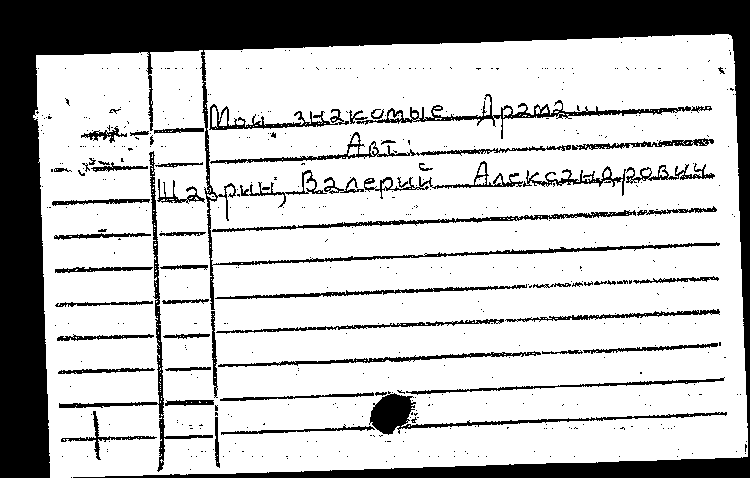 Мои знакомые. Драма...
Авт:
Шаврин, Валерий Александрович